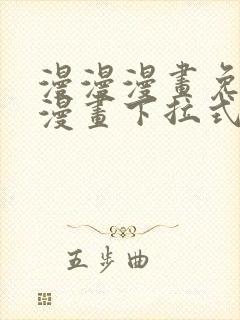 漫漫漫畫免
漫畫下拉式
五步曲